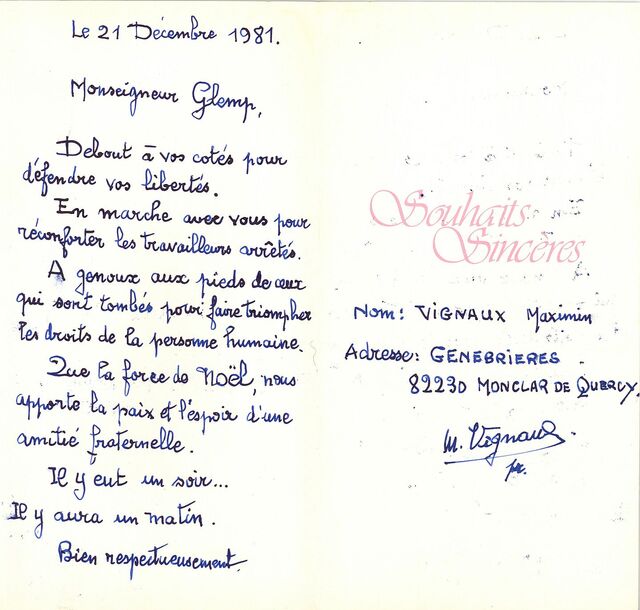 Le 21 Décembre 1981.
Monseigneur Glemp,
Debout à vos cotés pour
défendre vos libertés.
En marche avec vous pour
réconforter les travailleurs arrêtés.
A genoux aux pieds de ceux
qui sont tombés pour faire triompher
les droits de la personne humaine.
Que la force de Noël, nous
apporte la paix et l'espoir d'une
amitié fraternelle.
Il y eut un soir...
Il y aura un matin.
Bien respectueusement.
Souhaits
Sincères
Nom: VIGNAUX Maximin
Adresse: GENEBRIERES
82230 MONCLAR DE QUERCY.
M. Vignaux.